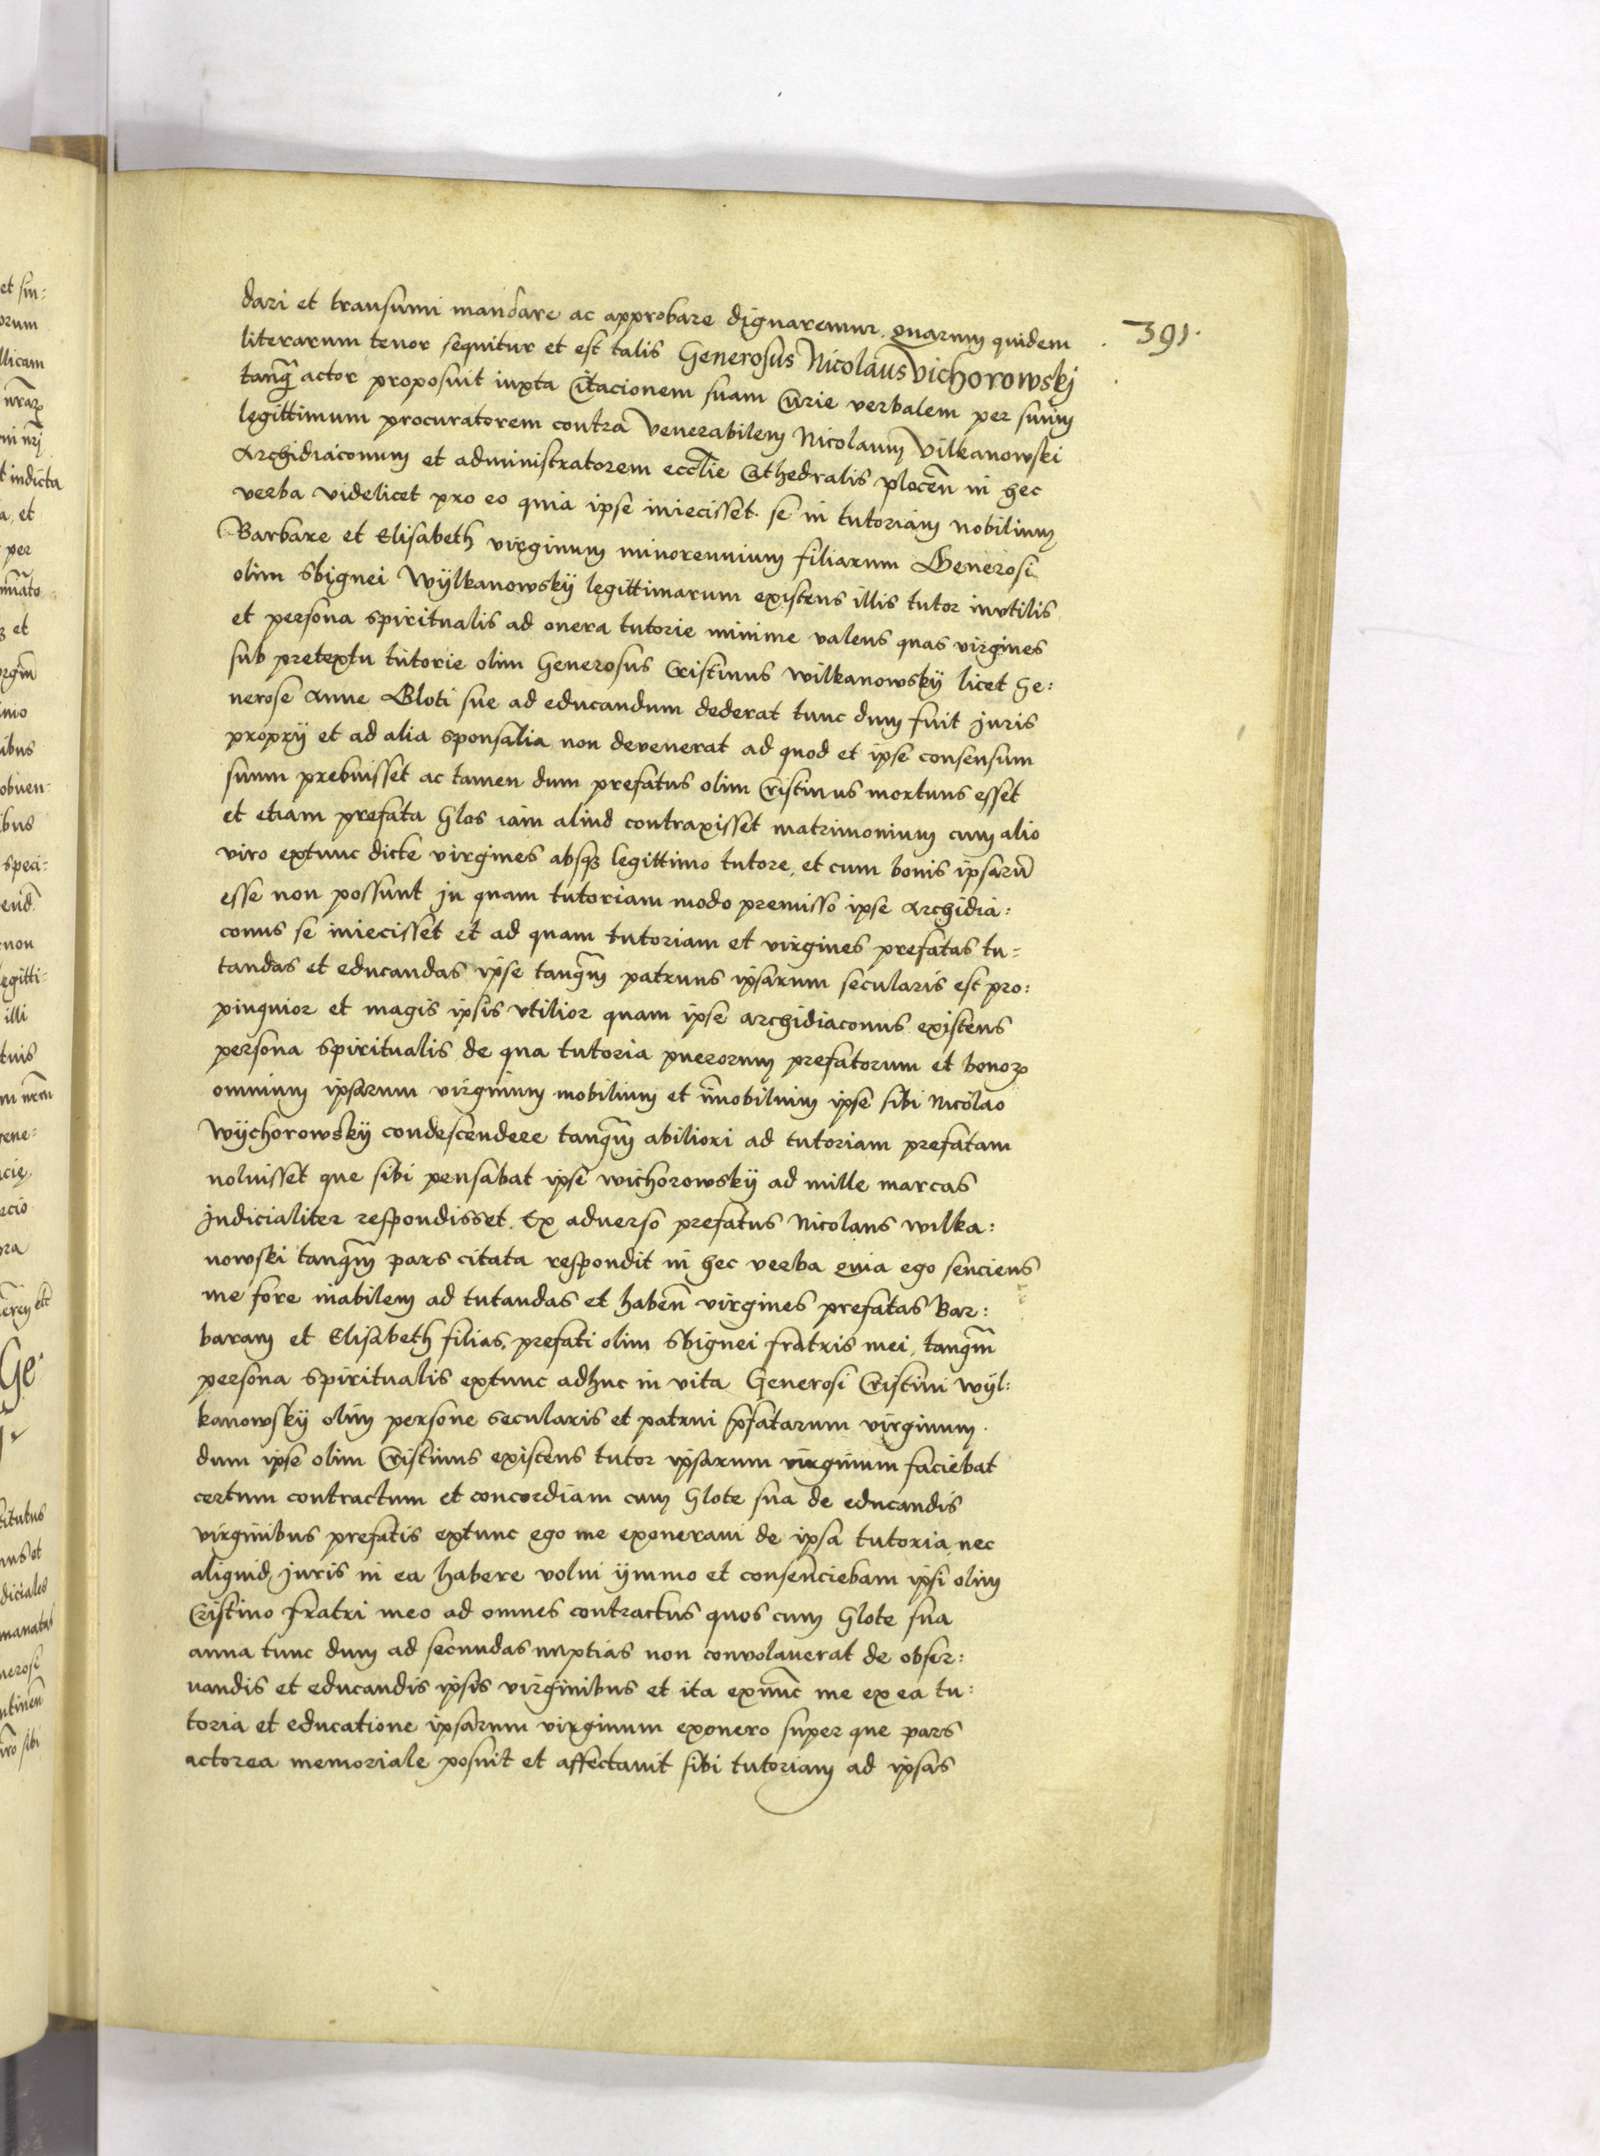 391.
dari et transumi mandare ac approbare dignaremur. quarum quidem
literarum tenor sequitur et est talis Generosus Nicolaus Vichorowskj
tanq̃ actor proposuit iuxta Citacionem suam Curie verbalem per suum
legittimum procuratorem contra Venerabilem Nicolaum Vilkanowski
Archidiaconum et administratorem eccl̃ie Cathedralis plocen̄ in hec
verba videlicet pro eo quia ipse iniecisset se in tutoriam nobilium
Barbare et Elisabeth virginum minorennium filiarum Generosi
olim Sbignei Wÿlkanowskÿ legittimarum existens illis tutor invtilis
et persona spiritualis ad onera tutorie minime valens quas virgines
sub pretextu tutorie olim Generosus Cristinus wilkanowskÿ licet Ge:
nerose Anne Gloti sue ad educandum dederat tunc dum fuit Juris
proprÿ et ad alia sponsalia non devenerat ad quod et ipse consensum
suum prebuisset ac tamen dum prefatus olim Cristinus mortuus esset
et etiam prefata Glos iam aliud contraxisset matrimonium cum alio
viro extunc dicte virgines absqꝫ legittimo tutore, et cum bonis ipsarū
esse non possunt Jn quam tutoriam modo premisso ipse Archidia:
conus se iniecisset et ad quam tutoriam et virgines prefatas tu=
tandas et educandas ipse tanq̃m patruus ipsarum secularis est pro:
pinquior et magis ipsis vtilior quam ipse archidiaconus existens
persona spiritualis de qua tutoria puerorum prefatorum et bonoꝝ
omnium ipsarum virginum mobilium et īmobilium ipse sibi Nicolao
Wÿchorowskÿ condescendere tanq̃m abiliori ad tutoriam prefatam
noluisset que sibi pensabat ipse wichorowskÿ ad mille marcas
Judicialiter respondisset. Ex aduerso prefatus Nicolaus wilka:
nowski tanq̃m pars citata respondit in hec verba quia ego senciens
me fore inabilem ad tutandas et haben̄ virgines prefatas Bar:
baram et Elisabeth filias, prefati olim Sbignei fratris mei, tanq̃m
persona spiritualis extunc adhuc in vita Generosi Cristini wÿl:
kanowskÿ olim persone secularis et patrui p̄fatarum virginum.
dum ipse olim Cristinus existens tutor ipsarum virginum faciebat
certum contractum et concordiam cum Glote sua de educandis
virginibus prefatis extunc ego me exoneraui de ipsa tutoria, nec
aliquid Juris in ea habere volui ÿmmo et consenciebam ipsi olim
Cristino fratri meo ad omnes contractus quos cum Glote sua
anna tunc dum ad secundas nuptias non convolauerat de obser:
uandis et educandis ipsis virginibus et ita exnūc me ex ea tu:
toria et educatione ipsarum virginum exonero super que pars
actorea memoriale posuit et affectauit sibi tutoriam ad ipsas